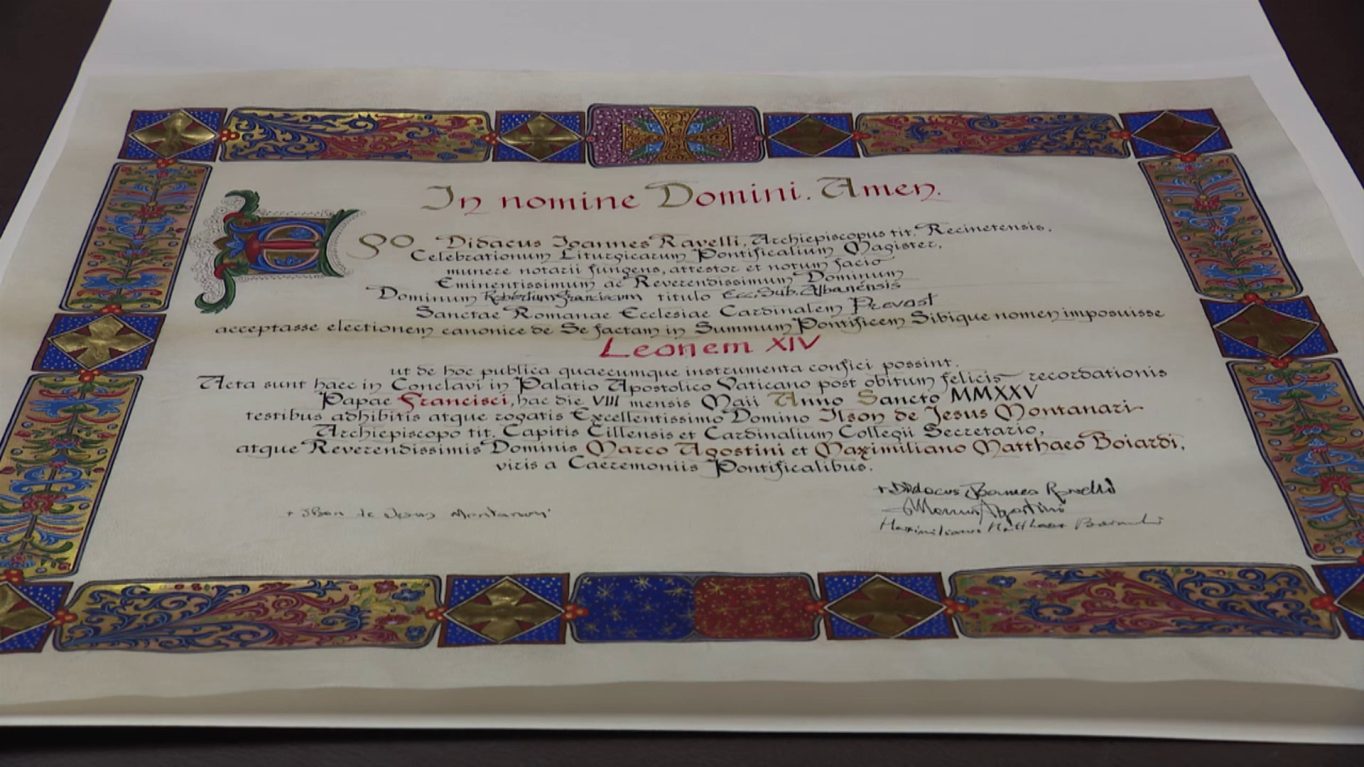 In nomine Domini. Amen.
Ego Didacus Ioannes Ravelli, Archiepiscopus tit. Recinetensis,
Celebrationum Liturgicarum Pontificalium Magister,
munere notarii fungens, attestor et notum facio
Eminentissimum ac Reverendissimum Dominum
Dominum Robertum Franciscum titulo Ecc. Sub. Albanensis
Sanctae Romanae Ecclesiae Cardinalem Prevost
acceptasse electionem canonice de Se factam in Summum Pontificem Sibique nomen imposuisse
Leonem XIV
ut de hoc publica quaecumque instrumenta confici possint.
Acta sunt haec in Conclavi in Palatio Apostolico Vaticano post obitum felicis recordationis
Papae Francisci, hac die VIII mensis Maii Anno Sancto MMXXV
testibus adhibitis atque rogatis Excellentissimo Domino Ilson de Jesus Montanari
Archiepiscopo tit. Capitis Cillensis et Cardinalium Collegii Secretario,
atque Reverendissimis Dominis Marco Agostini et Maximiliano Matthaeo Boiardi,
viris a Caeremoniis Pontificalibus.
+ Didacus Ioannes Ravelli
+ Ilson de Jesus Montanari
Marcus Agostini
Maximilianus Matthaeus Boiardi